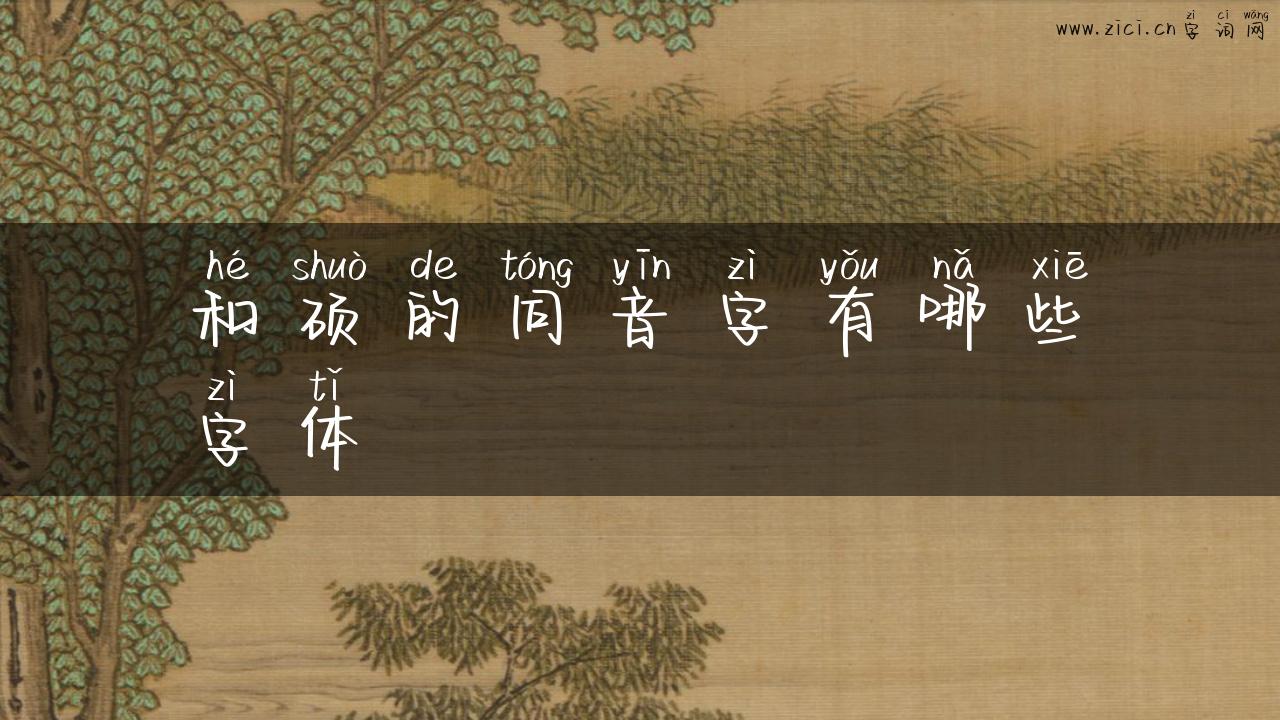 zì cí wǎng
www.zici.cn 字词网
hé shuò de tóng yīn zì yǒu nǎ xiē
和硕的同音字有哪些
zì tǐ
字体